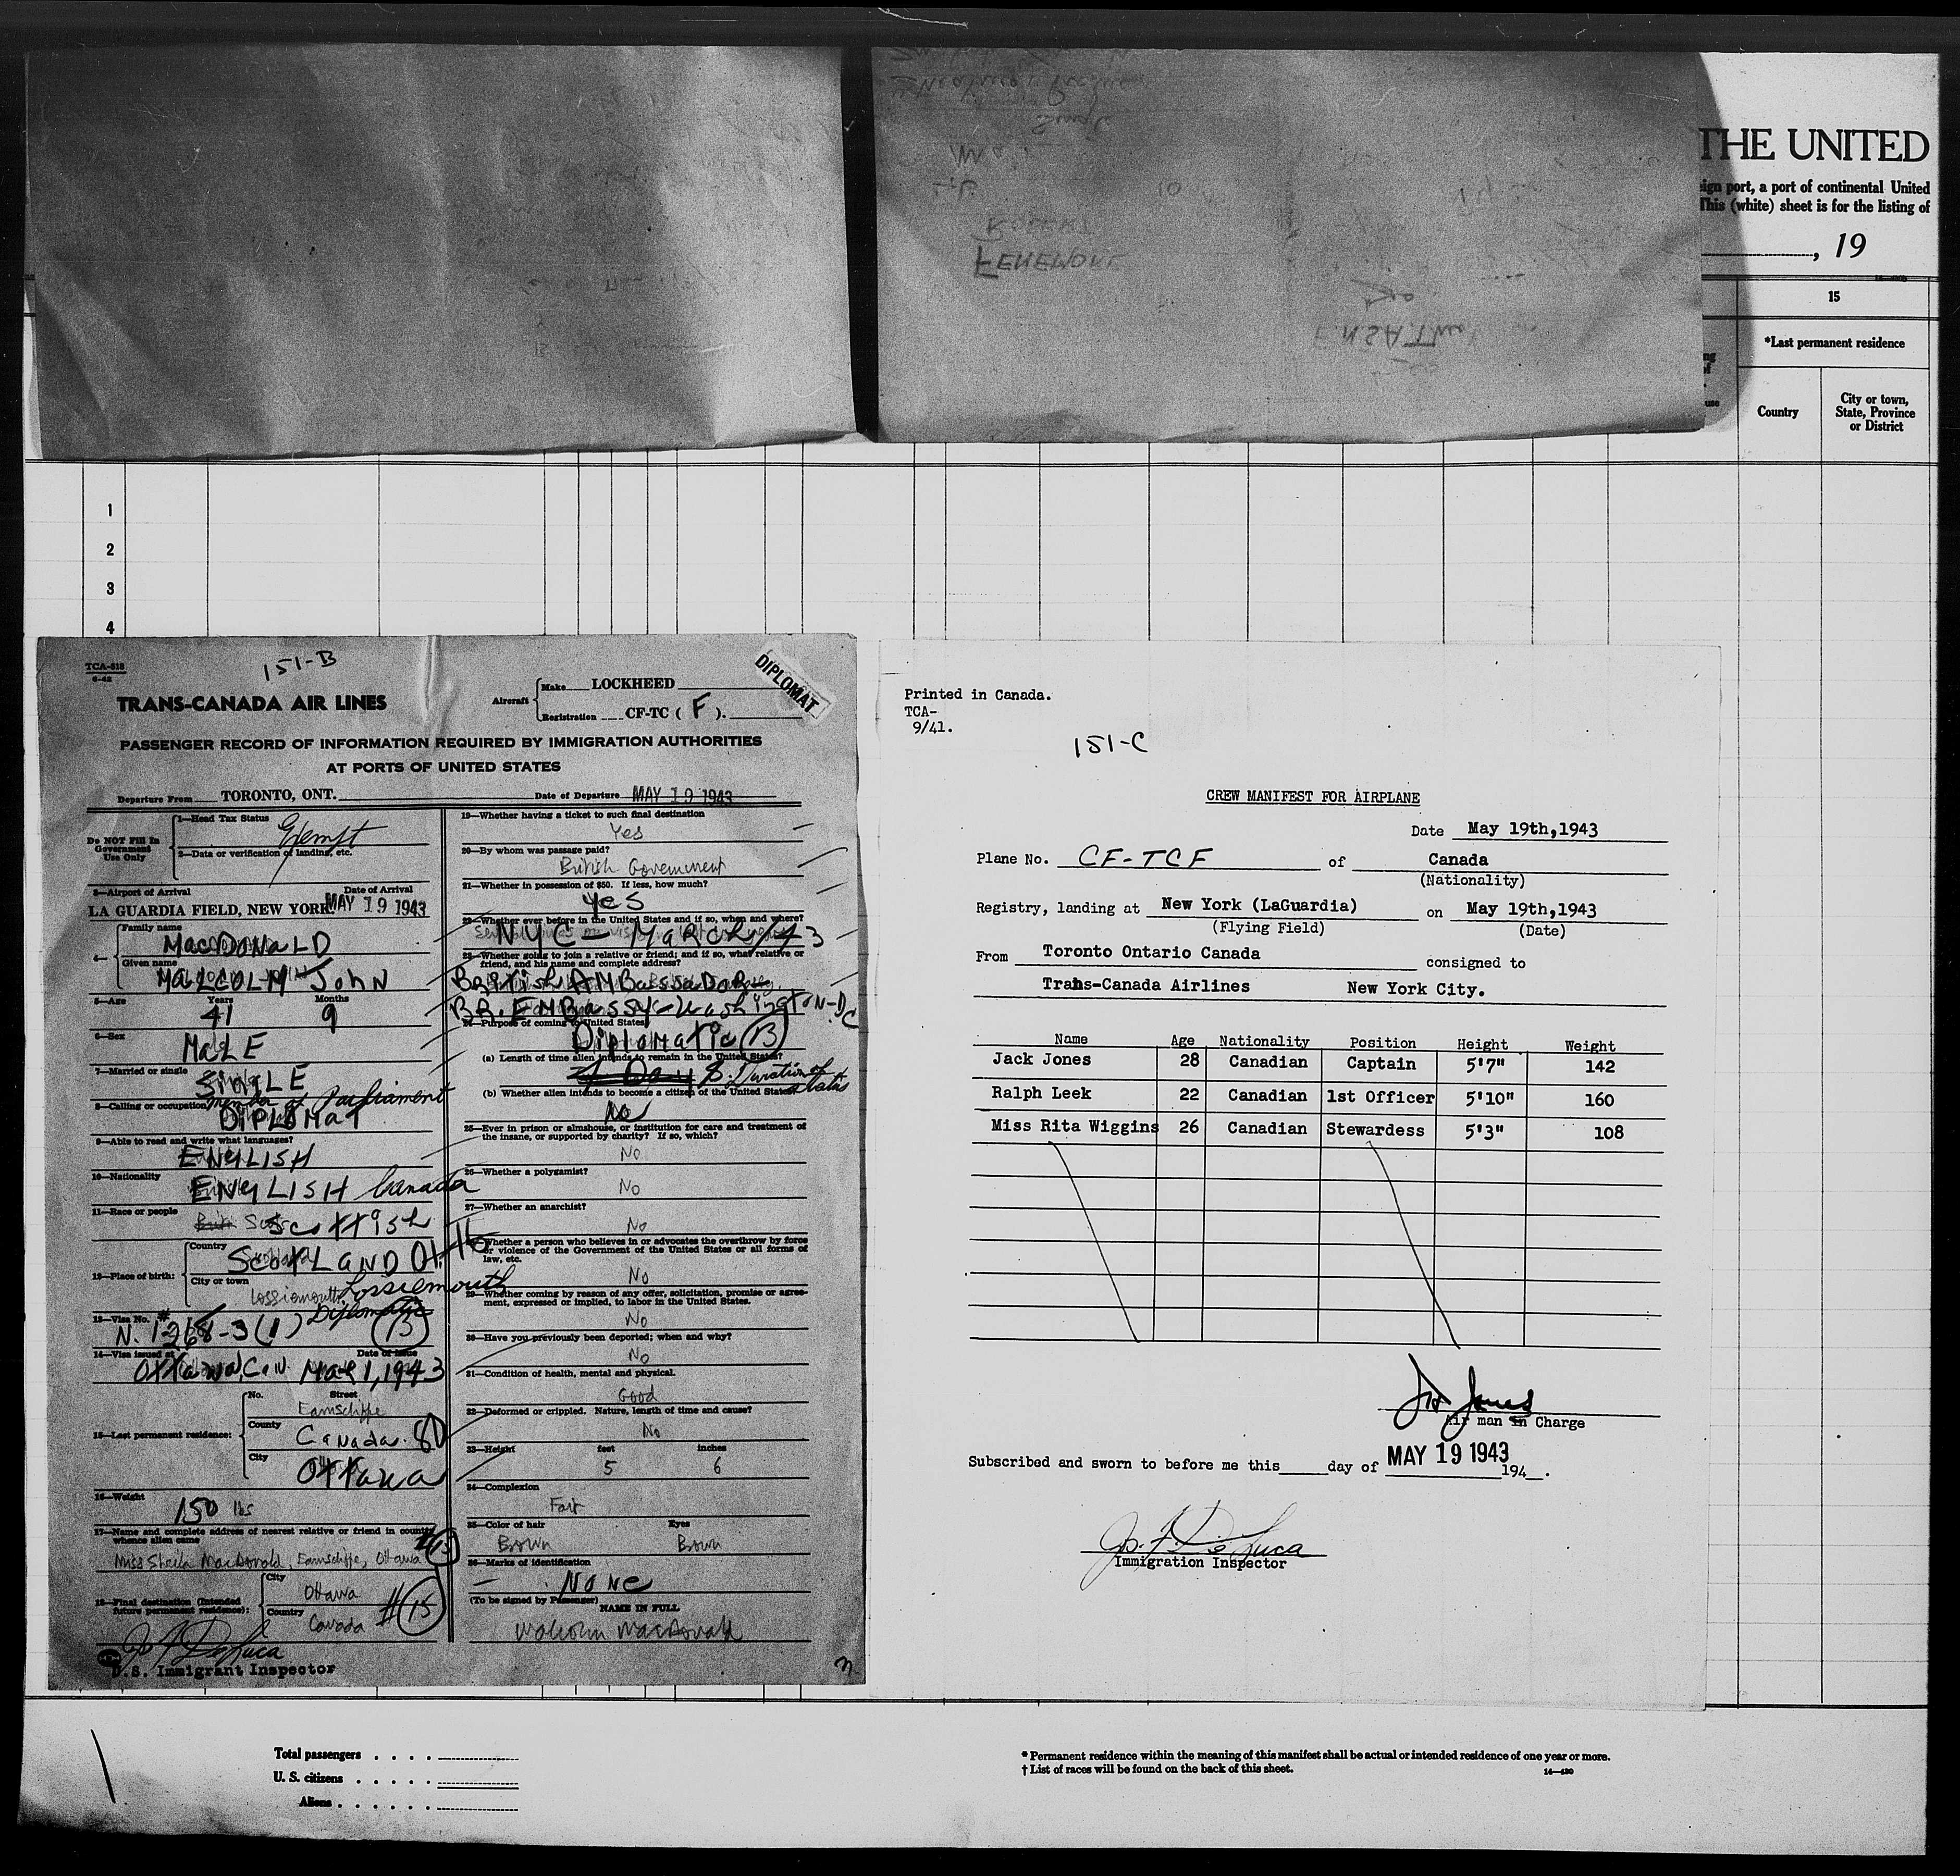 THE UNITED
ign port, a port of continental United
This (white) sheet is for the listing of
, 19
15
*Last permanent residence
Country
City or town,
State, Province
or District
1
2
3
4
TCA-618
6-42
151-B
TRANS-CANADA AIR LINES
Aircraft
Make LOCKHEED
Registration CF-TC ( F ).
DIPLOMAT
PASSENGER RECORD OF INFORMATION REQUIRED BY IMMIGRATION AUTHORITIES
AT PORTS OF UNITED STATES
Departure From TORONTO, ONT.
Date of Departure MAY 19 1943
Do NOT Fill In
Government
Use Only
1—Head Tax Status
Exempt
2—Data or verification of landing, etc.
3—Airport of Arrival Date of Arrival
LA GUARDIA FIELD, NEW YORK MAY 19 1943
4—
Family name
MacDONALD
Given name
MALCOLM JOHN
5—Age Years Months
41 9
6—Sex
MALE
7—Married or single
SINGLE
8—Calling or occupation Member of Parliament
DIPLOMAT
9—Able to read and write what languages?
ENGLISH
10—Nationality
ENGLISH Canada
11—Race or people
Scottish
12—Place of birth:
Country
SCOTLAND
City or town
Lossiemouth Lossiemouth
13—Visa No. # Diplomatic
N. 1268-3(1) (B)
14—Visa issued at Date of Issue
Ottawa, Can. Mar 1, 1943
15—Last permanent residence:
No. Street
Earnscliffe
County
Canada.
City
Ottawa
16—Weight
150 lbs
17—Name and complete address of nearest relative or friend in country
whence alien came
Miss Sheila MacDonald, Earnscliffe, Ottawa
18—Final destination (Intended
future permanent residence):
City
Ottawa
Country
Canada
#15
U.S. Immigrant Inspector
19—Whether having a ticket to such final destination
Yes
20—By whom was passage paid?
British Government
21—Whether in possession of $50. If less, how much?
Yes
22—Whether ever before in the United States and if so, when and where?
NYC - MARCH/43
23—Whether going to join a relative or friend; and if so, what relative or
friend, and his name and complete address?
British AMBassaDoR
BR. EMBassy-Washington-DC
24—Purpose of coming to United States
Diplomatic (B)
(a) Length of time alien intends to remain in the United States?
Duration of
status
(b) Whether alien intends to become a citizen of the United States?
No
25—Ever in prison or almshouse, or institution for care and treatment of
the insane, or supported by charity? If so, which?
No
26—Whether a polygamist?
No
27—Whether an anarchist?
No
28—Whether a person who believes in or advocates the overthrow by force
or violence of the Government of the United States or all forms of
law, etc.
No
29—Whether coming by reason of any offer, solicitation, promise or agree-
ment, expressed or implied, to labor in the United States.
No
30—Have you previously been deported; when and why?
No
31—Condition of health, mental and physical.
Good
32—Deformed or crippled. Nature, length of time and cause?
No
33—Height feet inches
5 6
34—Complexion
Fair
35—Color of hair Eyes
Brown Brown
36—Marks of identification
NONE
(To be signed by Passenger)
NAME IN FULL
Malcolm MacDonald
Printed in Canada.
TCA-
9/41.
151-C
CREW MANIFEST FOR AIRPLANE
Date May 19th,1943
Plane No. CF-TCF of Canada
(Nationality)
Registry, landing at New York (LaGuardia) on May 19th,1943
(Flying Field) (Date)
From Toronto Ontario Canada consigned to
Trans-Canada Airlines New York City.
Name Age Nationality Position Height Weight
Jack Jones 28 Canadian Captain 5'7" 142
Ralph Leek 22 Canadian 1st Officer 5'10" 160
Miss Rita Wiggins 26 Canadian Stewardess 5'3" 108
Air man in Charge
Subscribed and sworn to before me this day of MAY 19 1943 194 .
Immigration Inspector
Total passengers . . . .
U. S. citizens . . . . .
Aliens . . . . . .
* Permanent residence within the meaning of this manifest shall be actual or intended residence of one year or more.
† List of races will be found on the back of this sheet.
14—420